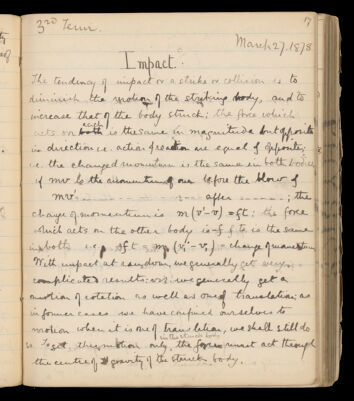 3rd Term.
17
March 27, 1878
Impact.
The tendency of impact or a strike or collision is to
diminish the motion of the striking body, and to
increase that of the body struck; the force which
acts on each is the same in magnitude but opposite
in direction i.e. action & reaction are equal & opposite;
i.e. the change of momentum is the same in both bodies
if mv be the momentum of one before the blow &
mv' after ; the
change of momentum is m(v'-v) = ft; the force
which acts on the other body is -f & t is the same
in both i.e. -ft = m,(v,'-v,) = change of momentum
With impact at random, we generally get very
complicated results; we generally get a
motion of rotation as well as one of translation; as
in former cases we have confined ourselves to
motion when it is one of translation, we shall still do
so. To get this motion only, the force must act through
in the struck body
the centre of gravity of the struck body.